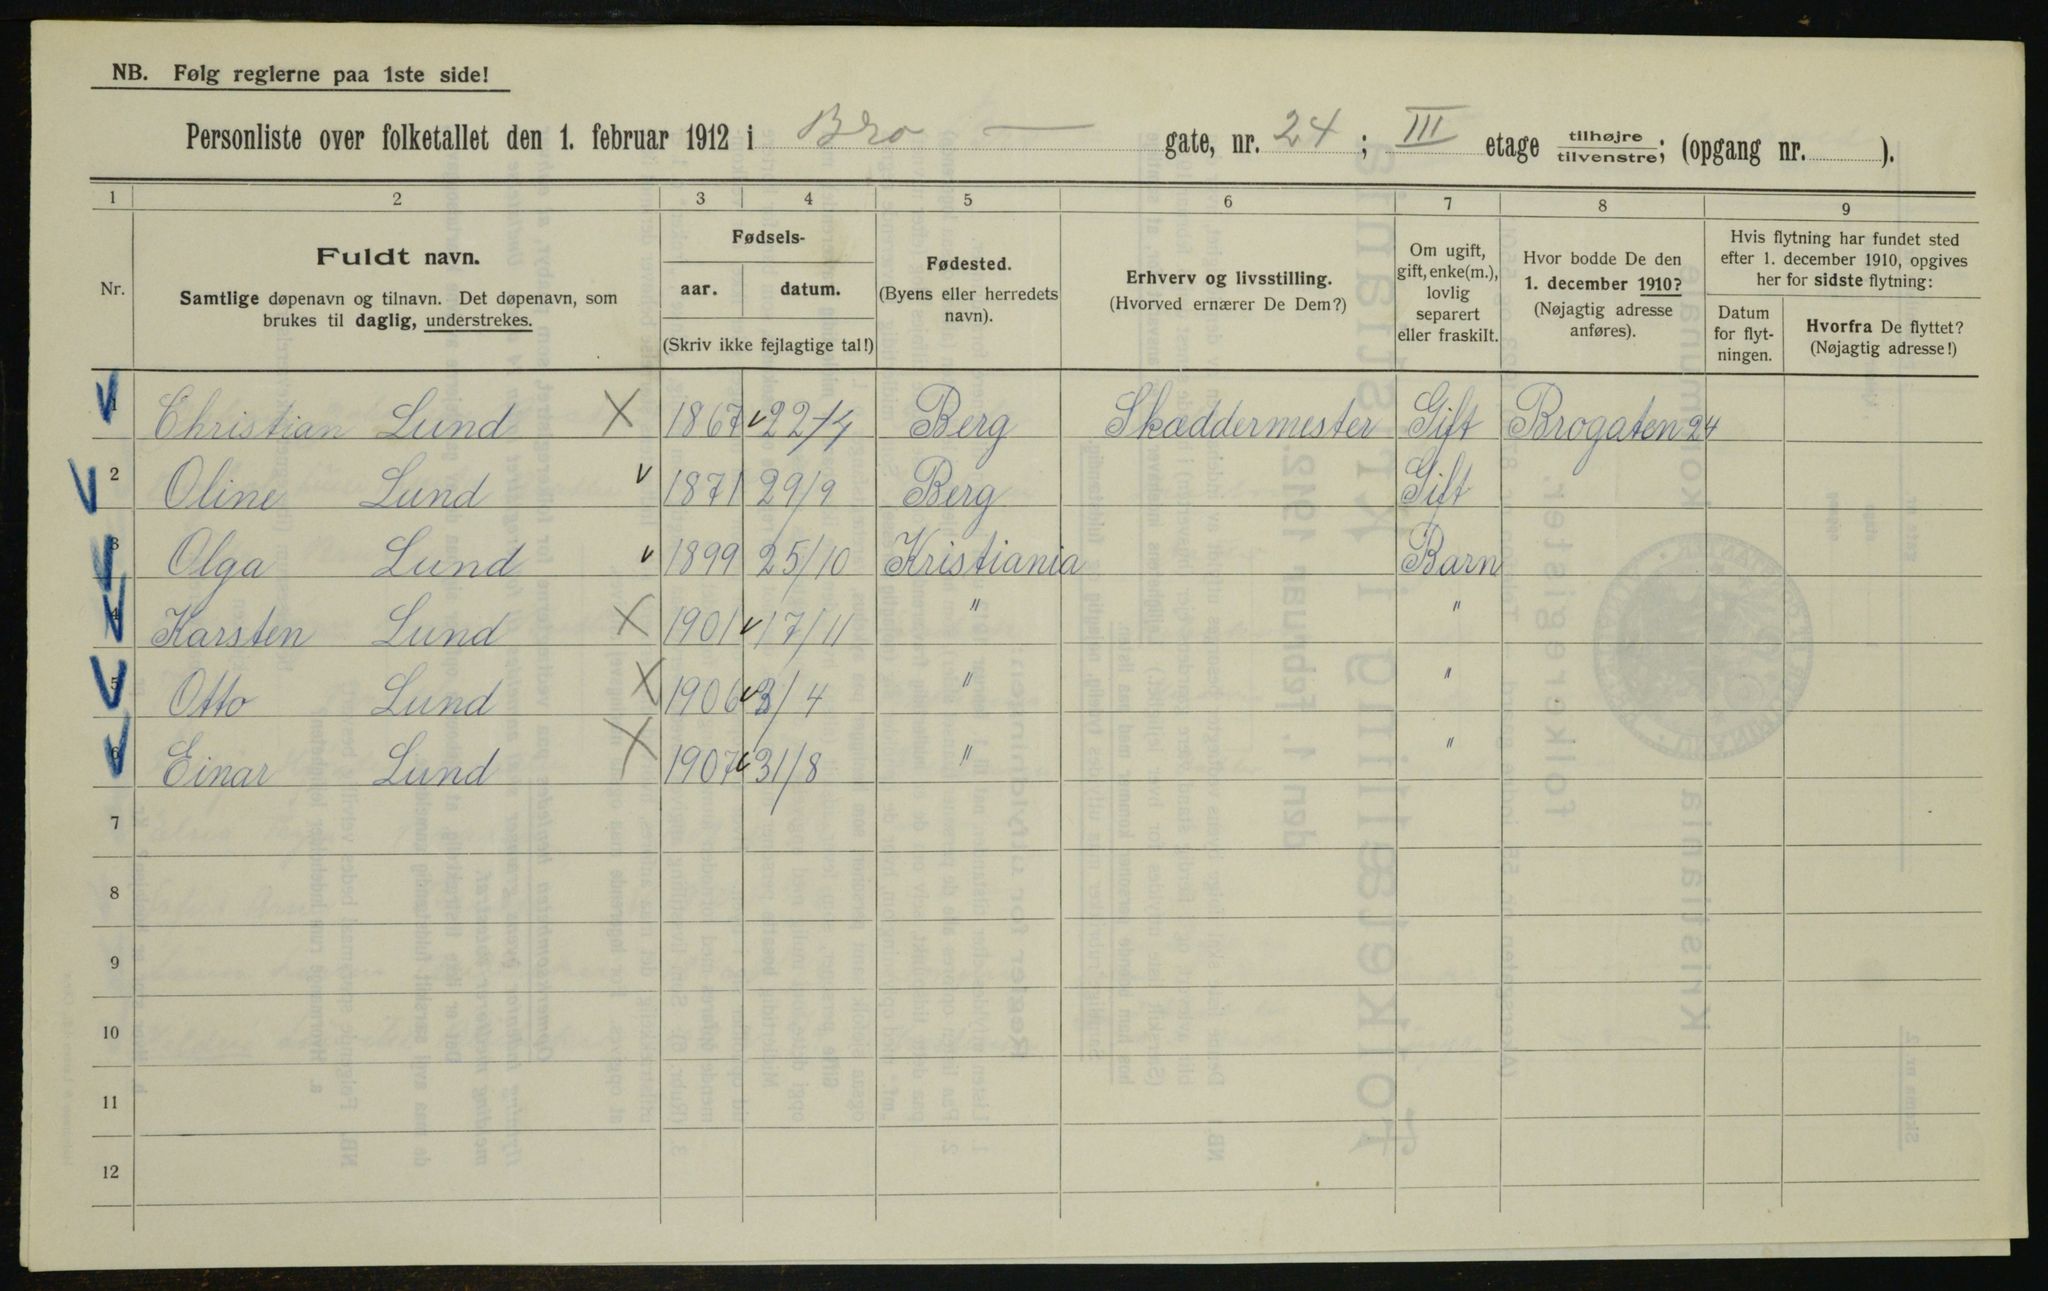 NB. Følg reglerne paa 1ste side!
Personliste over folketallet den 1. februar 1912 i Bro — gate, nr. 24; III etage tilhøjre/tilvenstre; (opgang nr. ).
1 2 3 4 5 6 7 8 9
Nr.
Fuldt navn.
Samtlige døpenavn og tilnavn. Det døpenavn, som
brukes til daglig, understrekes.
Fødsels-
aar. datum.
(Skriv ikke fejlagtige tal!)
Fødested.
(Byens eller herredets
navn).
Erhverv og livsstilling.
(Hvorved ernærer De Dem?)
Om ugift,
gift, enke(m.),
lovlig
separert
eller fraskilt.
Hvor bodde De den
1. december 1910?
(Nøjagtig adresse
anføres).
Hvis flytning har fundet sted
efter 1. december 1910, opgives
her for sidste flytning:
Datum
for flyt-
ningen.
Hvorfra De flyttet?
(Nøjagtig adresse!)
1 Christian Lund 1867 22/4 Berg Skæddermester Gift Brogaten 24
2 Oline Lund 1871 29/9 Berg Gift
3 Olga Lund 1899 25/10 Kristiania Barn
4 Karsten Lund 1901 17/11 " "
5 Otto Lund 1906 3/4 " "
6 Einar Lund 1907 31/8 " "
7
8
9
10
11
12